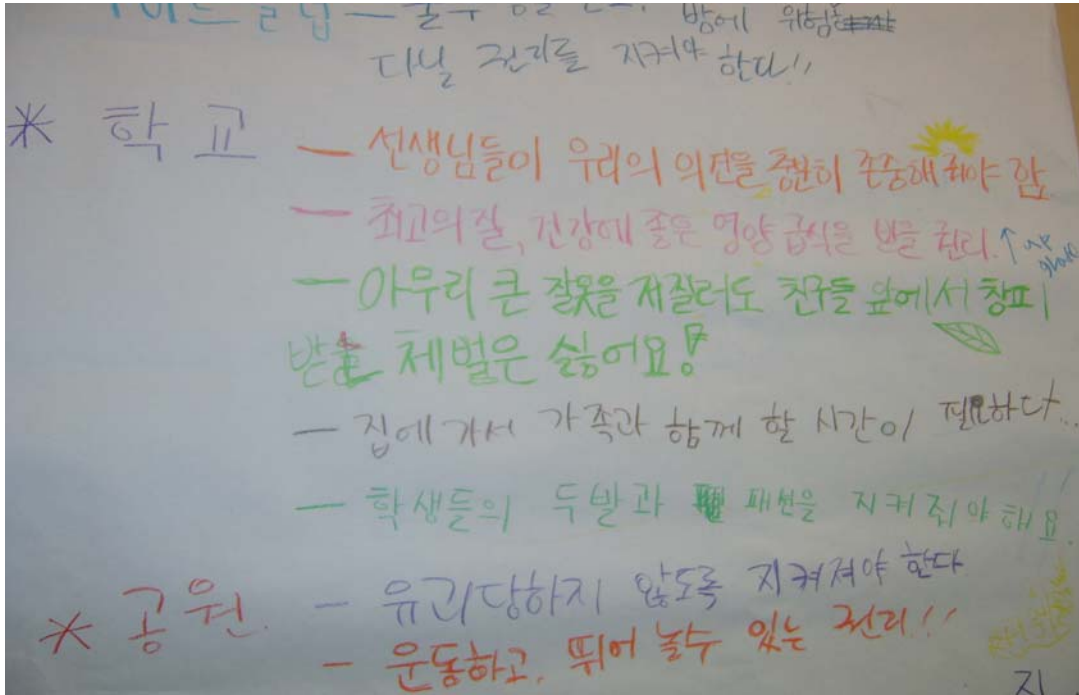 밤에 위험
다닐 권리를 지켜야 한다!!
* 학교 - 선생님들이 우리의 의견을 충분히 존중해줘야 함
- 최고의질, 건강에 좋은 영양 급식을 받을 권리.
- 아무리 큰 잘못을 저질러도 친구들 앞에서 창피
받는 체벌은 싫어요!
- 집에 가서 가족과 함께 할 시간이 필요하다...
- 학생들의 두발과 패션을 지켜줘야해요.
* 공원. - 유괴당하지 않도록 지켜져야 한다
- 운동하고, 뛰어 놀수 있는 권리!!
지